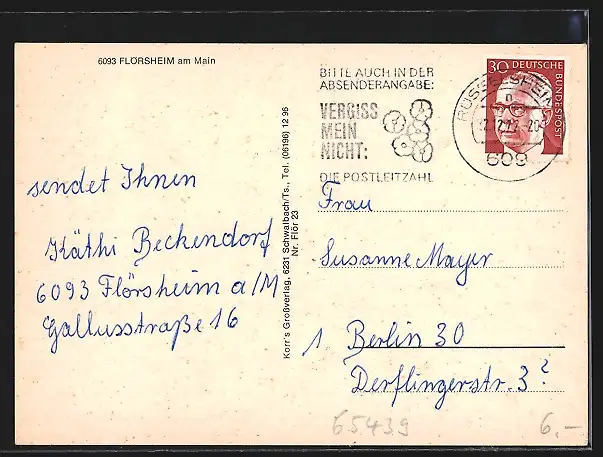 6093 FLÖRSHEIM am Main
sendet Ihnen
Käthi Beckendorf
6093 Flörsheim a/M
Gallusstraße 16
Korr's Großverlag, 6231 Schwalbach/Ts., Tel. (06196) 12 96
Nr. Flör 23
BITTE AUCH IN DER
ABSENDERANGABE:
VERGISS
MEIN
NICHT:
DIE POSTLEITZAHL
RÜSSELSHEIM
609
30 DEUTSCHE
BUNDESPOST
Frau
Susanne Mayer
1 Berlin 30
Derflingerstr. 3?
65439
6.-